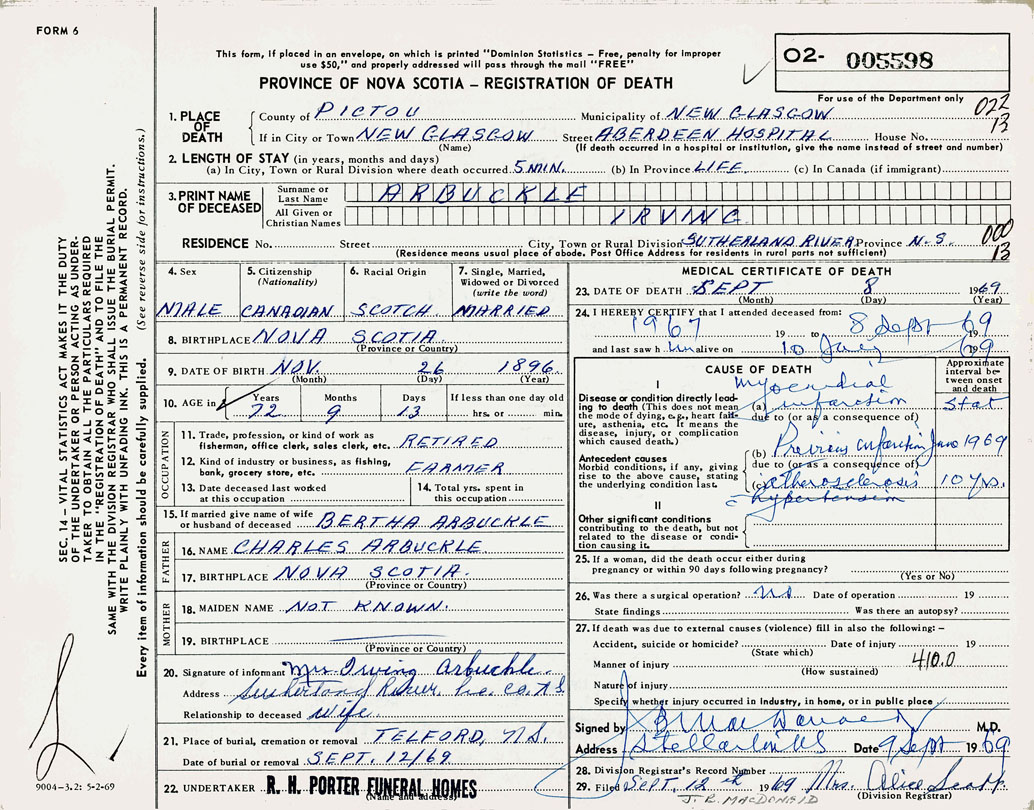 FORM 6
This form, if placed in an envelope, on which is printed "Dominion Statistics – Free, penalty for improper
use $50," and properly addressed will pass through the mail "FREE"
PROVINCE OF NOVA SCOTIA – REGISTRATION OF DEATH
02- 005598
For use of the Department only
022
13
1. PLACE OF DEATH
County of PICTOU Municipality of NEW GLASGOW
If in City or Town NEW GLASGOW Street ABERDEEN HOSPITAL House No.
(Name) (If death occurred in a hospital or institution, give the name instead of street and number)
2. LENGTH OF STAY (in years, months and days)
(a) In City, Town or Rural Division where death occurred 5 MIN. (b) In Province LIFE. (c) In Canada (if immigrant)
3. PRINT NAME OF DECEASED
Surname or Last Name ARBUCKLE
All Given or Christian Names IRVING
RESIDENCE No. Street City, Town or Rural Division SUTHERLAND RIVER Province N.S.
(Residence means usual place of abode. Post Office Address for residents in rural parts not sufficient)
000
13
4. Sex
MALE
5. Citizenship
(Nationality)
CANADIAN
6. Racial Origin
SCOTCH
7. Single, Married,
Widowed or Divorced
(write the word)
MARRIED
8. BIRTHPLACE NOVA SCOTIA.
(Province or Country)
9. DATE OF BIRTH NOV. 26 1896.
(Month) (Day) (Year)
10. AGE in Years Months Days If less than one day old
72 9 13 hrs. or min.
OCCUPATION
11. Trade, profession, or kind of work as
fisherman, office clerk, sales clerk, etc. RETIRED
12. Kind of industry or business, as fishing,
bank, grocery store, etc. FARMER
13. Date deceased last worked
at this occupation
14. Total yrs. spent in
this occupation
15. If married give name of wife
or husband of deceased BERTHA ARBUCKLE
FATHER
16. NAME CHARLES ARBUCKLE
17. BIRTHPLACE NOVA SCOTIA.
(Province or Country)
MOTHER
18. MAIDEN NAME NOT KNOWN.
19. BIRTHPLACE
(Province or Country)
20. Signature of informant Mrs Irving Arbuckle
Address Sutherland River, Pic. Co. N.S.
Relationship to deceased Wife
21. Place of burial, cremation or removal TELFORD, N.S.
Date of burial or removal SEPT. 12/69
22. UNDERTAKER R. H. PORTER FUNERAL HOMES
(Name and address)
MEDICAL CERTIFICATE OF DEATH
23. DATE OF DEATH SEPT 8 1969
(Month) (Day) (Year)
24. I HEREBY CERTIFY that I attended deceased from:
1967 19 to 8 Sept 69
and last saw him alive on 10 July 1969
CAUSE OF DEATH
Approximate
interval between
onset
and death
I
Disease or condition directly leading
to death (This does not mean
the mode of dying, e.g., heart failure,
asthenia, etc. It means the
disease, injury, or complication
which caused death.)
Myocardial
(a) infarction Stat
due to (or as a consequence of)
Antecedent causes
Morbid conditions, if any, giving
rise to the above cause, stating
the underlying condition last.
(b) Previous infarction June 1969
due to (or as a consequence of)
(c) atherosclerosis 10 yrs.
hypertension
II
Other significant conditions
contributing to the death, but not
related to the disease or condition
causing it.
25. If a woman, did the death occur either during
pregnancy or within 90 days following pregnancy?
(Yes or No)
26. Was there a surgical operation? no Date of operation 19
State findings Was there an autopsy?
27. If death was due to external causes (violence) fill in also the following: –
Accident, suicide or homicide? Date of injury 19
(State which)
410.0
Manner of injury
(How sustained)
Nature of injury
Specify whether injury occurred in Industry, in home, or in public place
Signed by M.D.
Address Stellarton NS Date 9 Sept 1969
28. Division Registrar's Record Number
29. Filed SEPT. 12th 1969 Mrs. Alice
(Division Registrar)
J. R. MACDONALD
SEC. 14 – VITAL STATISTICS ACT MAKES IT THE DUTY
OF THE UNDERTAKER OR PERSON ACTING AS UNDERTAKER
TO OBTAIN ALL THE PARTICULARS REQUIRED
IN THE "REGISTRATION OF DEATH" AND TO FILE THE
SAME WITH THE DIVISION REGISTRAR WHO SHALL ISSUE THE BURIAL PERMIT.
WRITE PLAINLY WITH UNFADING INK. THIS IS A PERMANENT RECORD.
Every item of information should be carefully supplied. (See reverse side for instructions.)
9004-3.2: 5-2-69